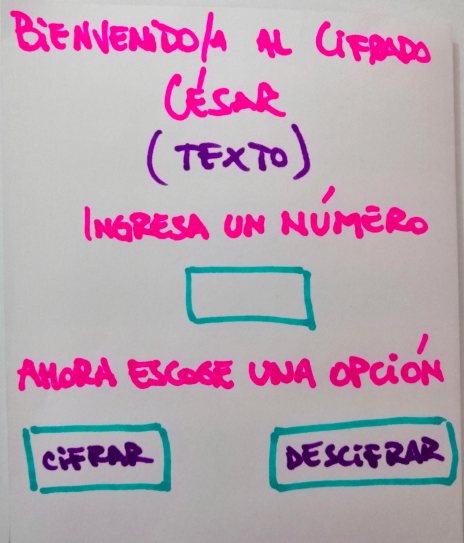 BIENVENIDO/A AL CIFRADO
CÉSAR
(TEXTO)
INGRESA UN NÚMERO
AHORA ESCOGE UNA OPCIÓN
CIFRAR DESCIFRAR